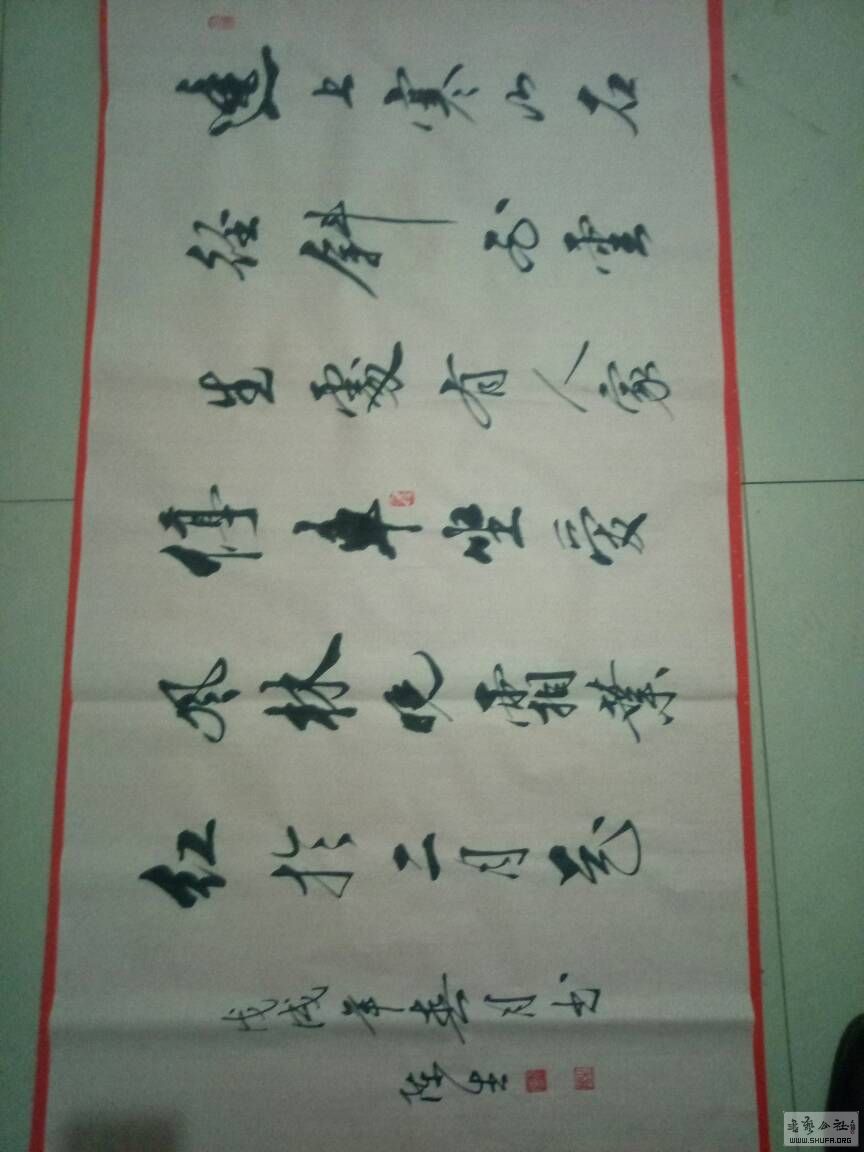 遠上寒山石
徑斜白雲
生處有人家
停車坐愛
楓林晚霜葉
紅於二月花
戊戌年月書
書藝公社
WWW.SHUFA.ORG